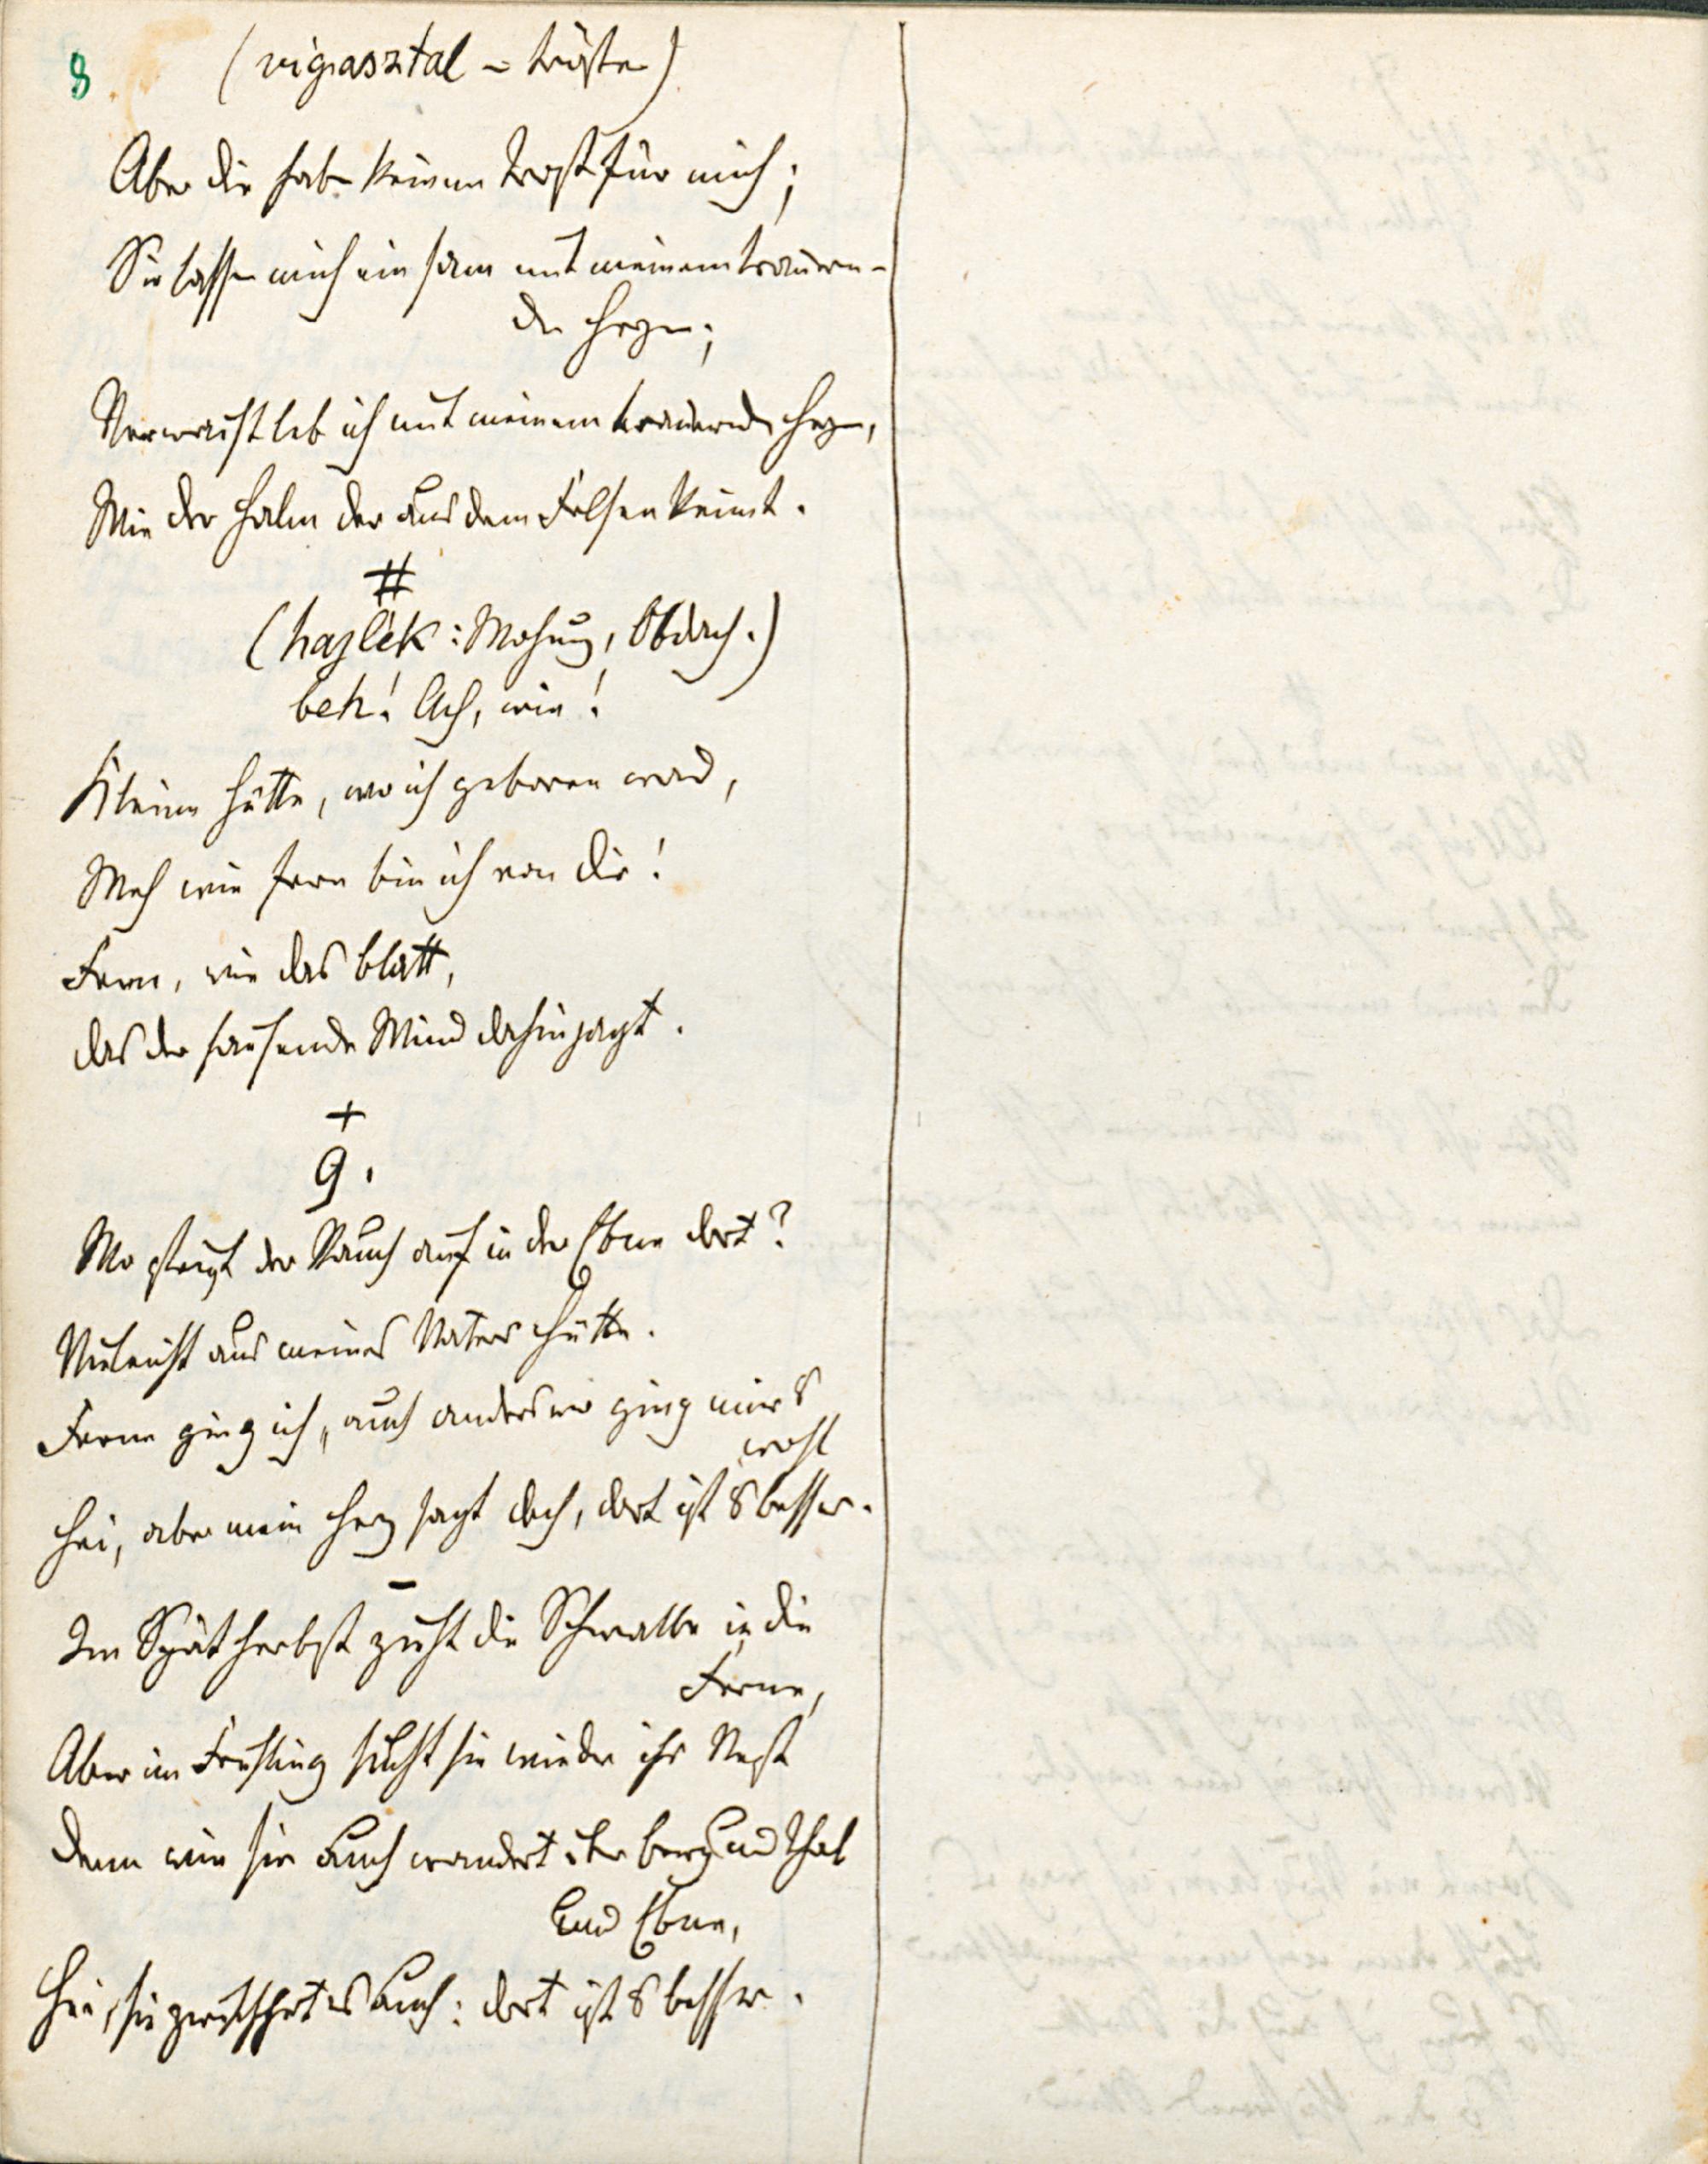 8
(vigasztal = trösten)
Aber die haben keinen Trost für mich;
Sie lassen mich einsam mit meinem trauern-
den Herzen;
Verwaist leb ich mit meinem trauernden Herzen,
Wie der Halm der aus dem Felsen keimt.
#
(hajlék: Wohnung, Obdach.)
beh! Ach, wie!
Kleine Hütte, wo ich geboren ward,
Weh wie fern bin ich von dir!
Fern, wie das Blatt,
das der sausende Wind dahinjagt.
+
9.
Wo steigt der Rauch auf in der Ebene dort?
Vieleicht aus meines Vaters Hütte.
Ferne ging ich, auch anderswo ging mirs
wohl
Hei, aber mein Herz sagt doch, dort ists besser.
–
Im Spätherbst zieht die Schwalbe in die
Ferne,
Aber im Frühling sucht sie wieder ihr Nest
Denn wie sie auch wandert über Berg und Thal
und Ebene,
Hei, sie zwitschert es auch: dort ists besser.